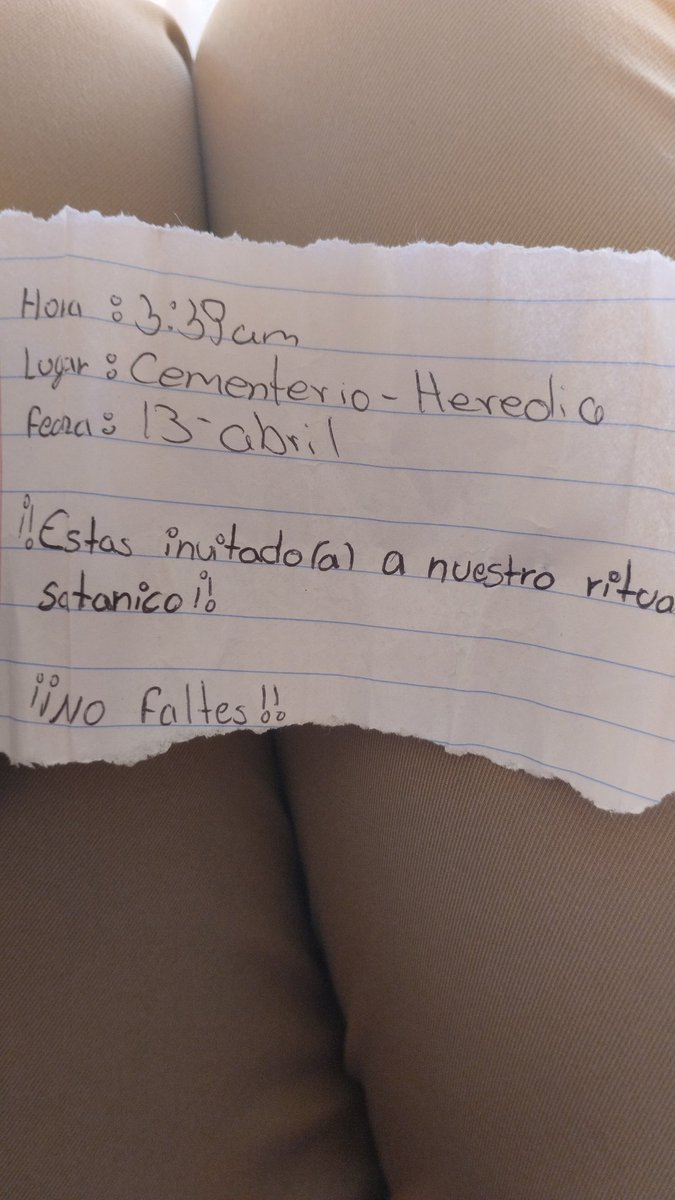 Hora : 3:39am
Lugar : Cementerio - Heredia
fecha : 13-abril
¡¡Estas invitado(a) a nuestro ritua
satanico¡!
¡¡NO faltes!!